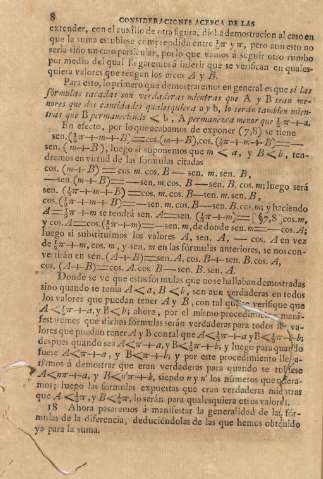 8 CONSIDERACIONES ACERCA DE LAS
extender, con el auxilio de otra figura, dicha demostracion al caso en
que la suma estubiese comprendida entre ½π y π, pero aun esto no
seria sino un caso particular, por lo que vamos á seguir otro rumbo
por medio del qual lograremos inferir que se verifican en quales-
quiera valores que tengan los arcos A y B.
Para esto, lo primero que demostraremos en general es que si las
fórmulas sacadas son verdaderas mientras que A y B sean me-
nores que dos cantidades qualesquiera a y b, lo serán tambien mien-
tras que B permaneciendo < b, A permanezca menor que ½π+a.
En efecto, por lo que acabamos de exponer (7,8) se tiene
sen.(½π+m+B)=cos.(m+B), cos.(½π+m+B)=—
sen.(m+B), luego si suponemos que m < a, y B<b, ten-
dremos en virtud de las fórmulas citadas
cos.(m+B)=cos. m cos. B—sen. m. sen. B,
—sen.(m+B)=—sen. m. cos. B—sen. B. cos. m; luego será
sen.(½π+m+B)=cos. m. cos. B—sen. m. sen. B,
cos.(½π+m+B)=—sen. m. cos. B—sen. B. cos. m; y haciendo
A=½π+m se tendrá sen. A=sen.(½π+m)=(§7,8) cos. m,
y cos. A=cos.(½π+m)=—sen. m, de donde sen. m=—cos. A;
luego si substituimos los valores A, sen. A, —cos. A en vez
de ½π+m, cos. m, y sen. m en las fórmulas anteriores, se nos con-
vertirán en sen.(A+B)=sen. A. cos. B+sen. B. cos. A,
cos.(A+B)=cos. A. cos. B—sen. B. sen. A.
Donde se ve que estas fórmulas que no se hallaban demostradas
sino quando se tenia A<a, B<b, son aun verdaderas en todos
los valores que puedan tener A y B, con tal que se verifique que
A<½π+a, y B<b; ahora, por el mismo procedimiento mani-
festaremos que dichas fórmulas serán verdaderas para todos los va-
lores que puedan tener A y B con tal que A<½π+a y B<½π+b;
despues quando sea A<π+a, y B<½π+b, y luego para quando
fuese A<π+a, y B<π+b, y por este procedimiento llega-
riamos á demostrar que eran verdaderas para quando se tubiese
A<nπ+a, y B<n'π+b, siendo n y n' los números que quera-
mos; luego las fórmulas expuestas que eran verdaderas mientras
que A<½π, y B<½π, lo serán para qualesquiera otros valores.
18 Ahora pasaremos á manifestar la generalidad de las fór-
mulas de la diferencia, deduciéndolas de las que hemos obtenido
ya para la suma.